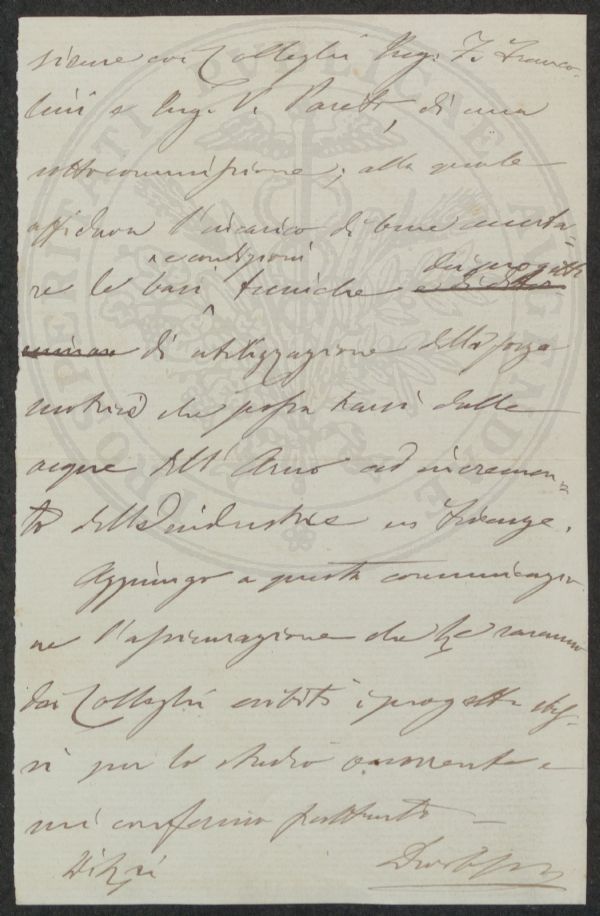 sieme coi Colleghi Ing. F. Franco-
lini e Ing. V. Pareto, di una
sottocommissione, alla quale
affidava l'incarico di bene accerta-
e condizioni
dei progetti
re le basi tecniche
di utilizzazione della forza
motrice che possa trarsi dalle
acque dell'Arno ad incremen-
to delle industrie in Firenze.
Aggiungo a questa comunicazio
ne l'assicurazione che le saranno
dai Colleghi esibiti i progetti stes-
si per lo studio occorrente e
mi confermo frattanto
PROSPERITATI PUBLICAE AUGENDAE